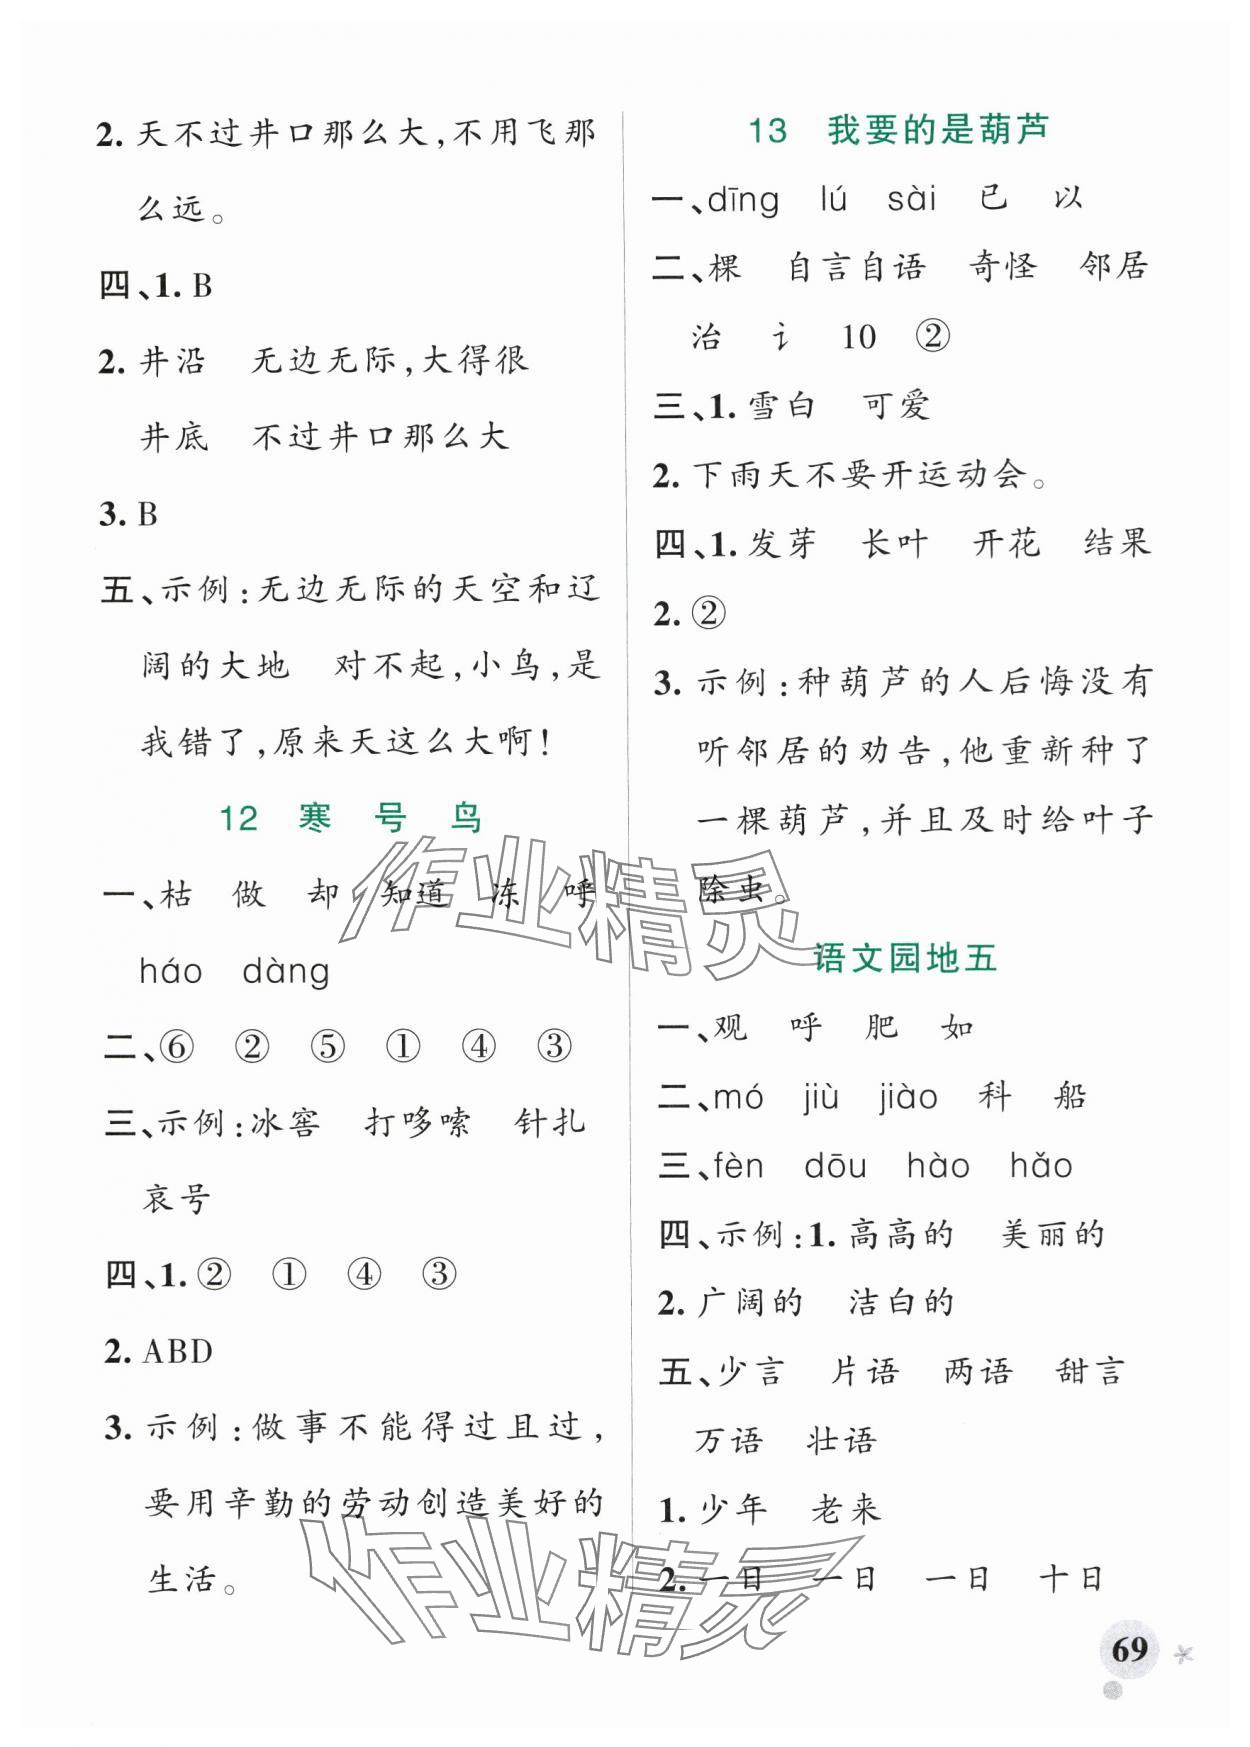 2. 天不过井口那么大,不用飞那
么远。
四、1. B
2. 井沿　无边无际,大得很
井底　不过井口那么大
3. B
五、示例:无边无际的天空和辽
阔的大地　对不起,小鸟,是
我错了,原来天这么大啊!
12　寒　号　鸟
一、枯　做　却　知道　冻　呼
háo　dàng
二、⑥　②　⑤　①　④　③
三、示例:冰窖　打哆嗦　针扎
哀号
四、1. ②　①　④　③
2. ABD
3. 示例:做事不能得过且过,
要用辛勤的劳动创造美好的
生活。
13　我要的是葫芦
一、dīng　lú　sài　已　以
二、棵　自言自语　奇怪　邻居
治　讠　10　②
三、1. 雪白　可爱
2. 下雨天不要开运动会。
四、1. 发芽　长叶　开花　结果
2. ②
3. 示例:种葫芦的人后悔没有
听邻居的劝告,他重新种了
一棵葫芦,并且及时给叶子
除虫。
语文园地五
一、观　呼　肥　如
二、mó　jiù　jiào　科　船
三、fèn　dōu　hào　hǎo
四、示例:1. 高高的　美丽的
2. 广阔的　洁白的
五、少言　片语　两语　甜言
万语　壮语
1. 少年　老来
2. 一日　一日　一日　十日
69
作业精灵
作业精灵